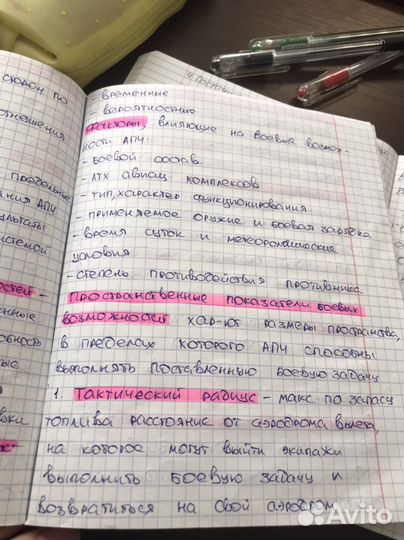 - временные
- вероятностные
Факторы, влияющие на боевые возмож-
ности АПЧ:
- боевой состав
- ЛТХ авиац комплексов
- тип, характер функционирования
- применяемое оружие и боевая зарядка
- время суток и метеорологические
условия
- степень противодействия противника
Пространственные показатели боевых
возможностей хар-ют размеры пространства,
в пределах которого АПЧ способны
выполнять поставленную боевую задачу
1. Тактический радиус - макс. по запасу
топлива расстояние от аэродрома вылета,
на которое могут выйти экипажи
выполнить боевую задачу и
возвратиться на свой аэродром
сторон по
отношения
пределение
ания АПЧ
ультаты
истемой
остей -
нные
обность
ные
Avito